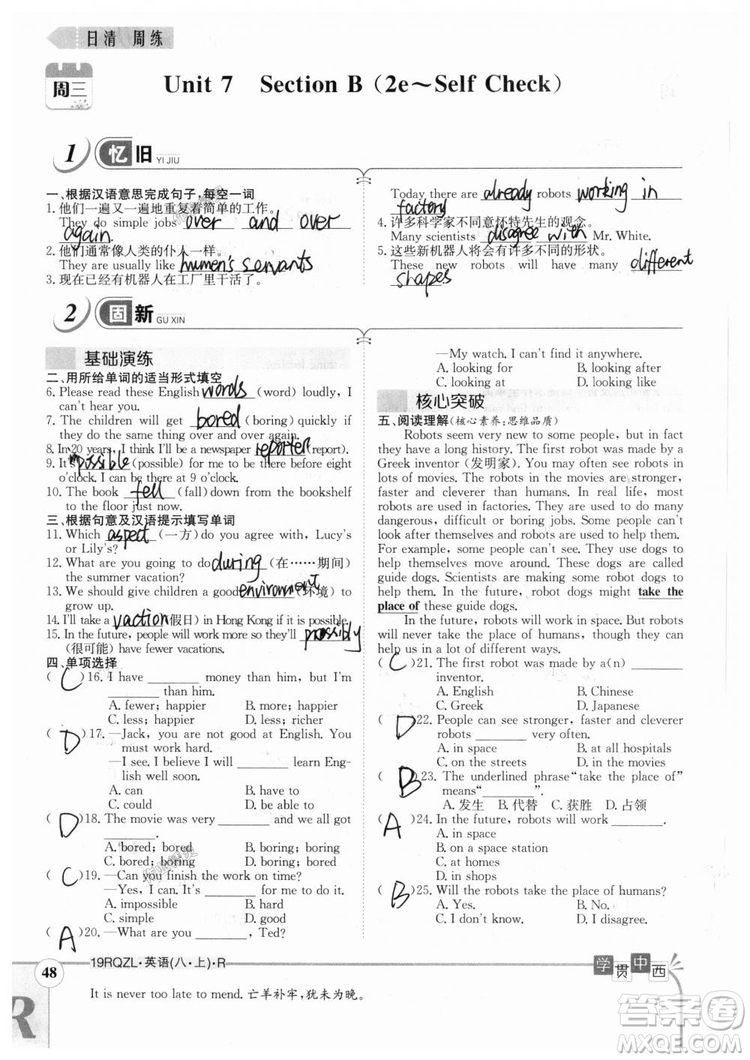 日清 周练
周三
Unit 7 Section B（2e～Self Check）
1 忆旧 YI JIU
一、根据汉语意思完成句子，每空一词
1. 他们一遍又一遍地重复着简单的工作。
They do simple jobs over and over
again.
2. 他们通常像人类的仆人一样。
They are usually like humen's servants
3. 现在已经有机器人在工厂里干活了。
Today there are already robots working in
factory.
4. 许多科学家不同意怀特先生的观念。
Many scientists disagree with Mr. White.
5. 这些新机器人将会有许多不同的形状。
These new robots will have many different
shapes.
2 固新 GU XIN
基础演练
二、用所给单词的适当形式填空
6. Please read these English words (word) loudly. I
can't hear you.
7. The children will get bored (boring) quickly if
they do the same thing over and over again.
8. In 20 years, I think I'll be a newspaper reporter (report).
9. It's possible (possible) for me to be there before eight
o'clock. I can arrive at 9 o'clock.
10. The book fell (fall) down from the bookshelf
to the floor just now.
三、根据句意及汉语提示填写单词
11. Which aspect (一方) do you agree with, Lucy's
or Lily's?
12. What are you going to do during (在……期间)
the summer vacation?
13. We should give children a good environment (环境) to
grow up.
14. I'll take a vaction (假日) in Hong Kong if it is possible.
15. In the future, people will work more and they'll possibly
(很可能) have fewer vacations.
四、单项选择
( C )16. I have ______ money than him, but I'm
______ than him.
A. fewer; richer B. more; richer
C. less; richer D. less; poorer
( D )17. —Jack, you are not good at English. You
must work hard.
—I see. I believe I will ______ learn Eng-
lish well soon.
A. can B. have to
C. could D. be able to
( D )18. The movie was very ______ and we all got
______.
A. bored; bored B. boring; boring
C. bored; boring D. boring; bored
( C )19. —Can you finish the work on time?
—Yes, I can. It is ______ for me to do it.
A. impossible B. hard
C. simple D. good
( A )20. —What are you ______, Ted?
—My watch. I can't find it anywhere.
A. looking for B. looking at
C. looking after D. looking like
核心突破
五、阅读理解（核心素养：思维品质）
Robots seem very new to some people, but in
fact they are not. The first robot was made by a
Greek inventor (发明家). You can see robots in
lots of movies. The robots in the movies are stronger,
faster and cleverer than humans. In real life, most
robots are used in factories. They are used to do many
dangerous, difficult or boring jobs. Some people can't
look after themselves and robots are used to help them.
For example, some people can't see. They use dogs to
help themselves move around. These dogs are called
guide dogs. Scientists are making some robot dogs to
help them. In the future, robot dogs might take
the place of these guide dogs.
In the future, robots will work in space. But robots
will never take the place of humans, though they can
help us in a lot of different ways.
( C )21. The first robot was made by a(n) ______
inventor.
A. English B. Chinese
C. Greek D. Japanese
( D )22. People can see stronger, faster and cleverer
robots ______.
A. in space B. at all hospitals
C. on the streets D. in the movies
( B )23. The underlined phrase“take the place of”
means“______”.
A. 发生 B. 代替 C. 获胜 D. 占领
( A )24. In the future, robots will work ______.
A. in space
B. on a space station
C. at homes
D. in shops
( B )25. Will the robots take the place of humans?
A. Yes. B. No.
C. I'm not sure. D. I don't know.
48
19RQZL·英语(八·上)·R
学贯中西
It is never too late to mend. 亡羊补牢，犹未为晚。
R
答案圈
MXQE.COM